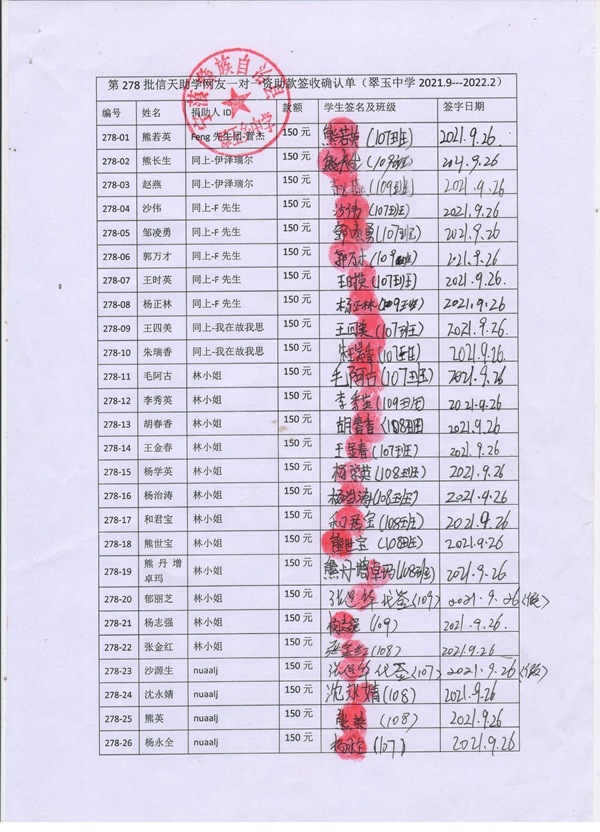 第 278 批信天助学网友一对一资助款签收确认单（翠玉中学 2021.9---2022.2）
编号 姓名 捐助人 ID 款额 学生签名及班级 签字日期
278-01 熊若英 Feng 先生团-曾杰 150 元 熊若英(107班) 2021.9.26
278-02 熊长生 同上-伊泽瑞尔 150 元 熊长生(109班) 2021.9.26
278-03 赵燕 同上-伊泽瑞尔 150 元 赵燕(109班) 2021.9.26
278-04 沙伟 同上-F 先生 150 元 沙伟(107班) 2021.9.26
278-05 邹凌勇 同上-F 先生 150 元 邹凌勇(107班) 2021.9.26
278-06 郭万才 同上-F 先生 150 元 郭万才(109班) 2021.9.26
278-07 王时英 同上-F 先生 150 元 (107班) 2021.9.26
278-08 杨正林 同上-F 先生 150 元 杨正林(109班) 2021.9.26
278-09 王四美 同上-我在故我思 150 元 王四美(107班) 2021.9.26
278-10 朱瑞香 同上-我在故我思 150 元 朱瑞香(107班) 2021.9.26
278-11 毛阿古 林小姐 150 元 毛阿古(107班) 2021.9.26
278-12 李秀英 林小姐 150 元 李秀英(109班) 2021.9.26
278-13 胡春香 林小姐 150 元 胡春香(108班) 2021.9.26
278-14 王金春 林小姐 150 元 王金春(107班) 2021.9.26
278-15 杨学英 林小姐 150 元 杨学英(108班) 2021.9.26
278-16 杨治涛 林小姐 150 元 杨治涛(108班) 2021.9.26
278-17 和君宝 林小姐 150 元 和君宝(108班) 2021.9.26
278-18 熊世宝 林小姐 150 元 熊世宝(108班) 2021.9.26
278-19 熊 丹 增 卓玛 林小姐 150 元 熊丹增卓玛(108班) 2021.9.26
278-20 郁丽芝 林小姐 150 元 代签(109) 2021.9.26(假)
278-21 杨志强 林小姐 150 元 杨志强(109) 2021.9.26.
278-22 张金红 林小姐 150 元 张金红(108) 2021.9.26
278-23 沙源生 nuaalj 150 元 代签(107) 2021.9.26(假)
278-24 沈永婧 nuaalj 150 元 沈永婧(108) 2021.9.26
278-25 熊英 nuaalj 150 元 熊英(108) 2021.9.26
278-26 杨永全 nuaalj 150 元 杨永全(107) 2021.9.26